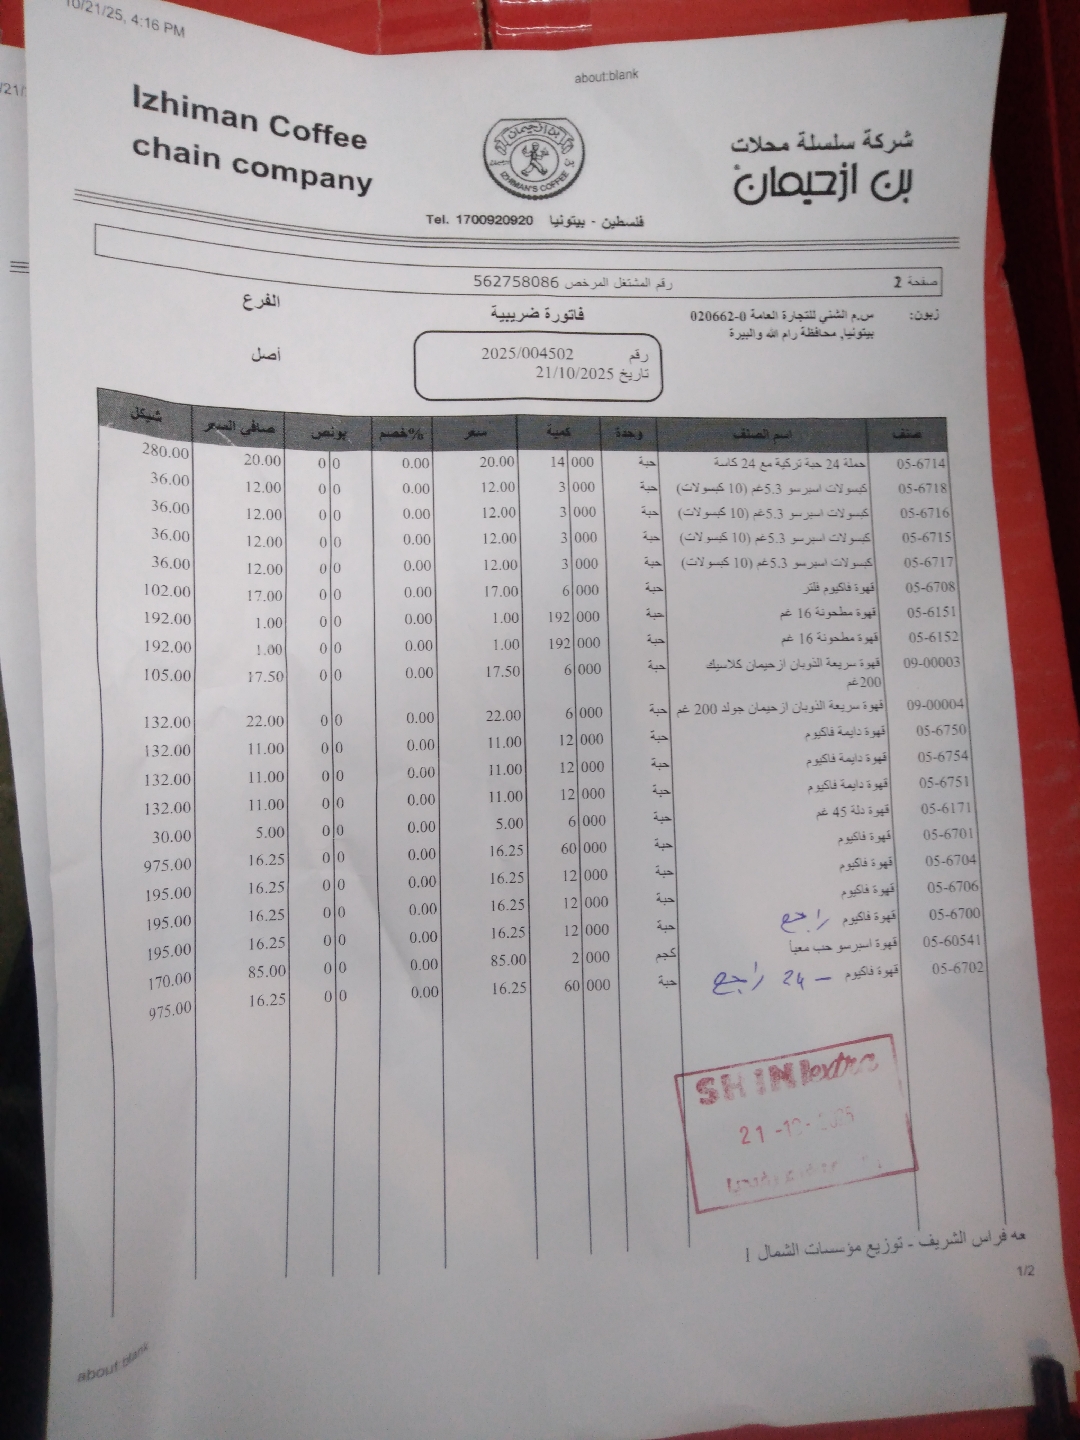 10/21/25, 4:16 PM
about:blank
Izhiman Coffee
chain company
شركة سلسلة محلات
بن ازحيمان
IZHIMAN'S COFFEE
فلسطين - بيتونيا Tel. 1700920920
صفحة 2 رقم المشتغل المرخص 562758086
زبون: س.م الشني للتجارة العامة 0-020662
بيتونيا, محافظة رام الله والبيرة
فاتورة ضريبية
الفرع
أصل
رقم 2025/004502
تاريخ 21/10/2025
صنف اسم الصنف وحدة كمية سعر خصم% بونص صافى السعر شيكل
05-6714 حملة 24 حبة تركية مع 24 كاسة حبة 14 000 20.00 0.00 0 0 20.00 280.00
05-6718 كبسولات اسبرسو 5.3غم (10 كبسولات) حبة 3 000 12.00 0.00 0 0 12.00 36.00
05-6716 كبسولات اسبرسو 5.3غم (10 كبسولات) حبة 3 000 12.00 0.00 0 0 12.00 36.00
05-6715 كبسولات اسبرسو 5.3غم (10 كبسولات) حبة 3 000 12.00 0.00 0 0 12.00 36.00
05-6717 كبسولات اسبرسو 5.3غم (10 كبسولات) حبة 3 000 12.00 0.00 0 0 12.00 36.00
05-6708 قهوة فاكيوم فلتر حبة 6 000 17.00 0.00 0 0 17.00 102.00
05-6151 قهوة مطحونة 16 غم حبة 192 000 1.00 0.00 0 0 1.00 192.00
05-6152 قهوة مطحونة 16 غم حبة 192 000 1.00 0.00 0 0 1.00 192.00
09-00003 قهوة سريعة الذوبان ازحيمان كلاسيك حبة 6 000 17.50 0.00 0 0 17.50 105.00
200غم
09-00004 قهوة سريعة الذوبان ازحيمان جولد 200 غم حبة 6 000 22.00 0.00 0 0 22.00 132.00
05-6750 قهوة دايمة فاكيوم حبة 12 000 11.00 0.00 0 0 11.00 132.00
05-6754 قهوة دايمة فاكيوم حبة 12 000 11.00 0.00 0 0 11.00 132.00
05-6751 قهوة دايمة فاكيوم حبة 12 000 11.00 0.00 0 0 11.00 132.00
05-6171 قهوة دلة 45 غم حبة 6 000 5.00 0.00 0 0 5.00 30.00
05-6701 قهوة فاكيوم حبة 60 000 16.25 0.00 0 0 16.25 975.00
05-6704 قهوة فاكيوم حبة 12 000 16.25 0.00 0 0 16.25 195.00
05-6706 قهوة فاكيوم حبة 12 000 16.25 0.00 0 0 16.25 195.00
05-6700 قهوة فاكيوم راجع حبة 12 000 16.25 0.00 0 0 16.25 195.00
05-60541 قهوة اسبرسو حب معبأ كجم 2 000 85.00 0.00 0 0 85.00 170.00
05-6702 قهوة فاكيوم – 24 راجع حبة 60 000 16.25 0.00 0 0 16.25 975.00
SHINI extra
عه فراس الشريف - توزيع مؤسسات الشمال 1
1/2
about:blank